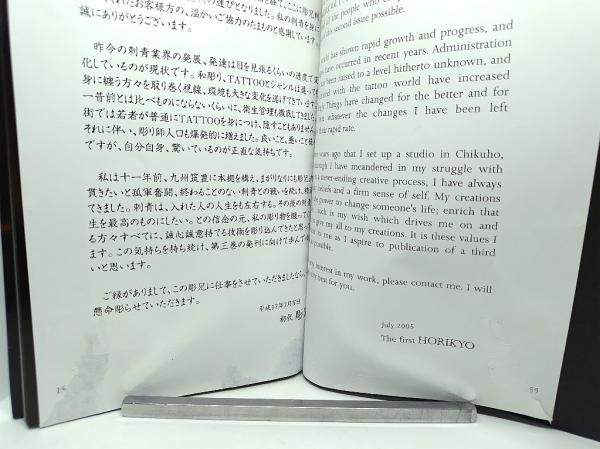 の運びとなりました。私の刺青を身に
れたお客様方の、温かいご協力のたまものと感謝しています。
誠にありがとうございます。
昨今の刺青業界の発展、発達は目を見張るくらいの速度で
化しているのが現状です。和彫り、TATTOOとジャンルは違っても
身に纏う方々を取り巻く視線、環境も大きな変化を遂げてきています。
一昔前とは比べものにならないくらいに、衛生管理も徹底してきました。
街では若者が普通にTATTOOを身につけ、隠すこともありません。
それに伴い、彫り師人口も爆発的に増えました。良いこと、悪いこと
ですが、自分自身、驚いているのが正直な気持ちです。
私は十一年前、九州筑豊に本拠を構え、まがりなりにも彫兄
貫きたいと孤軍奮闘、終わることのない刺青との戦いを続け、
てきました。刺青は、入れた人の人生をも左右する。その後の
生を最高のものにしたい。との信念の元、私の彫り物を纏って
る方々すべてに、誠心誠意持てる技術を彫り込んできたと
ます。この気持ちを持ち続け、第三巻の発刊に向けて歩んで
いと思います。
ご縁がありまして、この彫兄に仕事をさせていただきましたなら、
懸命彫らせていただきます。
平成17年7月吉日
初代 彫
of the people who
second issue possible.
has shown rapid growth and progress, and
have occurred in recent years. Administration
been raised to a level hitherto unknown, and
with the tattoo world have increased
Things have changed for the better and for
whatever the changes I have been left
their rapid rate.
years ago that I set up a studio in Chikuho,
I have meandered in my struggle with
never-ending creative process, I have always
beliefs and a firm sense of self. My creations
the power to change someone's life; enrich that
such is my wish which drives me on and
give my all to my creations. It is these values I
to me as I aspire to publication of a third
possible.
interest in my work, please contact me. I will
very best for you.
July 2005
The first HORIKYO